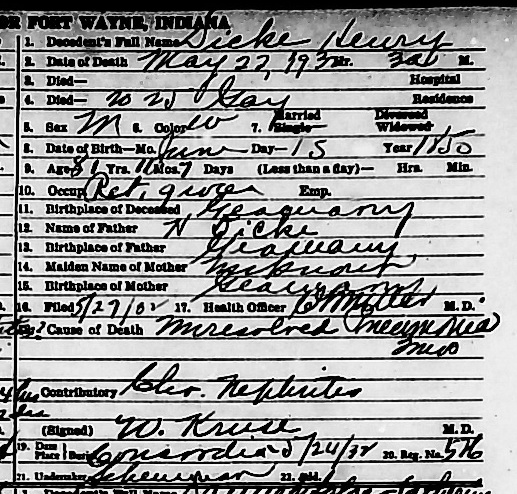 OR FORT WAYNE, INDIANA
1. Decedent's Full Name Dicke Henry
2. Date of Death May 22, 193 Hr. 3 a M.
3. Died— Hospital
4. Died— 2025 Gay Residence
5. Sex M 6. Color W 7. Married Single Divorced Widowed
8. Date of Birth—Mo. June Day—15 Year 1850
9. Age 81 Yrs. 11 Mos. 7 Days (Less than a day)— Hrs. Min.
10. Occup. Ret. grocer Emp.
11. Birthplace of Deceased Germany
12. Name of Father H Dicke
13. Birthplace of Father Germany
14. Maiden Name of Mother unknown
15. Birthplace of Mother Germany
16. Filed 5/27/32 17. Health Officer Miller M. D.
Cause of Death Unresolved Pneumonia
Contributory Chr. Nephrites
(Signed) W. Kruse M. D.
19. Date Place Burial Concordia 5/24/32 20. Reg. No. 576
21. Undertaker 22. Add.
1. Decedent's Full Name